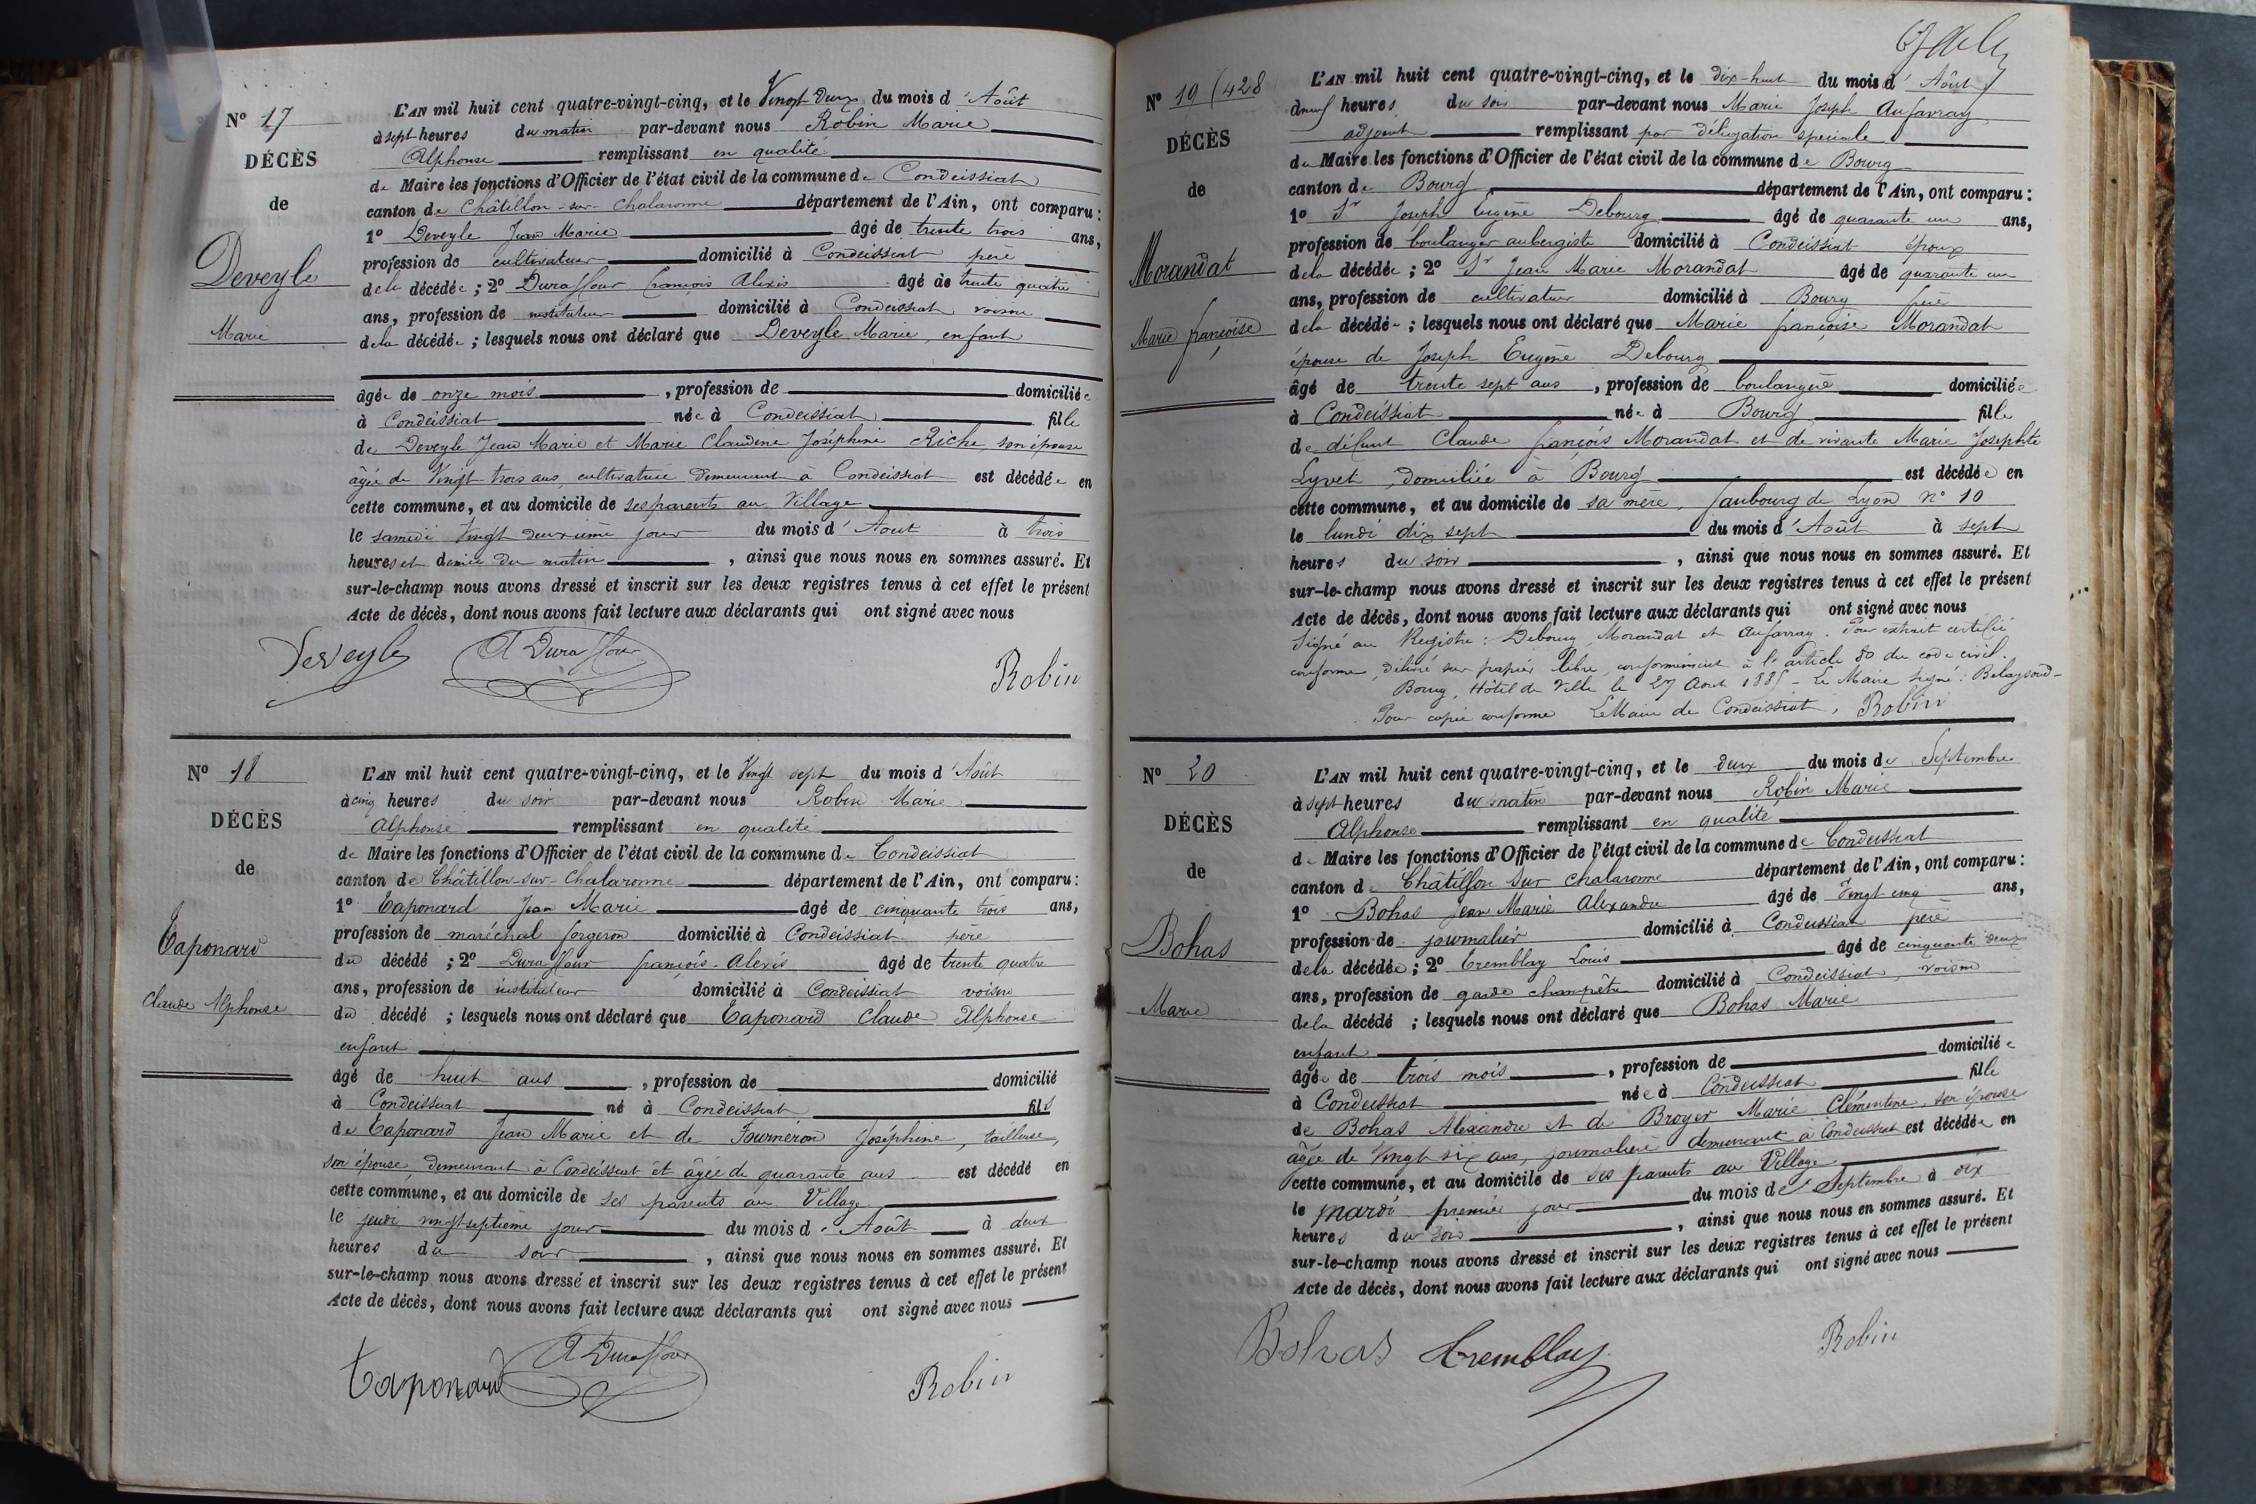 N° 17
DÉCÈS
de
Deveyle
Marie
L'AN mil huit cent quatre-vingt-cinq, et le Vingt-deux du mois d'Août
à sept heures du matin par-devant nous Robin Marie
Alphonse remplissant en qualité
de Maire les fonctions d'Officier de l'état civil de la commune de Condeissiat
canton de Châtillon-sur-Chalaronne département de l'Ain, ont comparu :
1° Deveyle Jean Marie âgé de trente trois ans,
profession de cultivateur domicilié à Condeissiat père
de la décédée ; 2° Duraffour François Alexis âgé de trente quatre
ans, profession de instituteur domicilié à Condeissiat voisin
de la décédée ; lesquels nous ont déclaré que Deveyle Marie, enfant
âgée de onze mois, profession de domiciliée
à Condeissiat née à Condeissiat fille
de Deveyle Jean Marie et Marie Claudine Joséphine Riche, son épouse
âgée de Vingt trois ans, cultivatrice demeurant à Condeissiat est décédée en
cette commune, et au domicile de ses parents au Village
le samedi Vingt deuxième jour du mois d'Août à trois
heures et demie du matin, ainsi que nous nous en sommes assuré. Et
sur-le-champ nous avons dressé et inscrit sur les deux registres tenus à cet effet le présent
Acte de décès, dont nous avons fait lecture aux déclarants qui ont signé avec nous
Deveyle A Duraffour Robin
N° 18
DÉCÈS
de
Taponard
Claude Alphonse
L'AN mil huit cent quatre-vingt-cinq, et le Vingt sept du mois d'Août
à cinq heures du soir par-devant nous Robin Marie
Alphonse remplissant en qualité
de Maire les fonctions d'Officier de l'état civil de la commune de Condeissiat
canton de Châtillon-sur-Chalaronne département de l'Ain, ont comparu :
1° Taponard Jean Marie âgé de cinquante trois ans,
profession de maréchal forgeron domicilié à Condeissiat père
du décédé ; 2° Duraffour françois-Alexis âgé de trente quatre
ans, profession de instituteur domicilié à Condeissiat voisin
du décédé ; lesquels nous ont déclaré que Taponard Claude Alphonse
enfant
âgé de huit ans, profession de domicilié
à Condeissiat né à Condeissiat fils
de Taponard Jean Marie et de Fourneron Joséphine, tailleuse,
son épouse, demeurant à Condeissiat et âgée de quarante ans est décédé en
cette commune, et au domicile de ses parents au Village
le jeudi vingt-septième jour du mois d'Août à deux
heures du soir, ainsi que nous nous en sommes assuré. Et
sur-le-champ nous avons dressé et inscrit sur les deux registres tenus à cet effet le présent
Acte de décès, dont nous avons fait lecture aux déclarants qui ont signé avec nous
Taponard A Duraffour Robin
N° 19 (428
DÉCÈS
de
Morandat
Marie françoise
L'AN mil huit cent quatre-vingt-cinq, et le dix-huit du mois d'Août
à neuf heures du soir par-devant nous Marie Joseph Aufavray
adjoint remplissant par délégation spéciale
du Maire les fonctions d'Officier de l'état civil de la commune de Bourg
canton de Bourg département de l'Ain, ont comparu :
1° Sr Joseph Eugène Debourg âgé de quarante un ans,
profession de boulanger aubergiste domicilié à Condeissiat époux
de la décédée ; 2° Sr Jean Marie Morandat âgé de quarante un
ans, profession de cultivateur domicilié à Bourg
de la décédée ; lesquels nous ont déclaré que Marie françoise Morandat
épouse de Joseph Eugène Debourg
âgé de trente sept ans, profession de boulangère domiciliée
à Condeissiat née à Bourg fille
de défunt Claude françois Morandat et de vivante Marie Josephte
Lyvet, domiciliée à Bourg est décédée en
cette commune, et au domicile de sa mère, faubourg de Lyon n° 10
le lundi dix sept du mois d'Août à sept
heures du soir, ainsi que nous nous en sommes assuré. Et
sur-le-champ nous avons dressé et inscrit sur les deux registres tenus à cet effet le présent
Acte de décès, dont nous avons fait lecture aux déclarants qui ont signé avec nous
Signé au Registre : Debourg, Morandat et Aufavray. Pour extrait certifié
conforme, délivré sur papier libre, conformément à l'article 80 du code civil.
Bourg, Hôtel de Ville le 27 Août 1885 - Le Maire signé :
Pour copie conforme Le Maire de Condeissiat, Robin
N° 20
DÉCÈS
de
Bohas
Marie
L'AN mil huit cent quatre-vingt-cinq, et le deux du mois de Septembre
à sept heures du matin par-devant nous Robin Marie
Alphonse remplissant en qualité
de Maire les fonctions d'Officier de l'état civil de la commune de Condeissiat
canton de Châtillon sur Chalaronne département de l'Ain, ont comparu :
1° Bohas Jean Marie Alexandre âgé de Vingt cinq ans,
profession de journalier domicilié à Condeissiat père
de la décédée ; 2° Tremblay Louis âgé de cinquante deux
ans, profession de garde champêtre domicilié à Condeissiat, voisin
de la décédé ; lesquels nous ont déclaré que Bohas Marie
enfant
âgée de trois mois, profession de domiciliée
à Condeissiat née à Condeissiat fille
de Bohas Alexandre et de Broyer Marie Clémentine, son épouse
âgée de Vingt six ans, journalière demeurant à Condeissiat est décédée en
cette commune, et au domicile de ses parents au Village
le mardi premier jour du mois de Septembre à dix
heures du soir, ainsi que nous nous en sommes assuré. Et
sur-le-champ nous avons dressé et inscrit sur les deux registres tenus à cet effet le présent
Acte de décès, dont nous avons fait lecture aux déclarants qui ont signé avec nous
Bohas Tremblay Robin